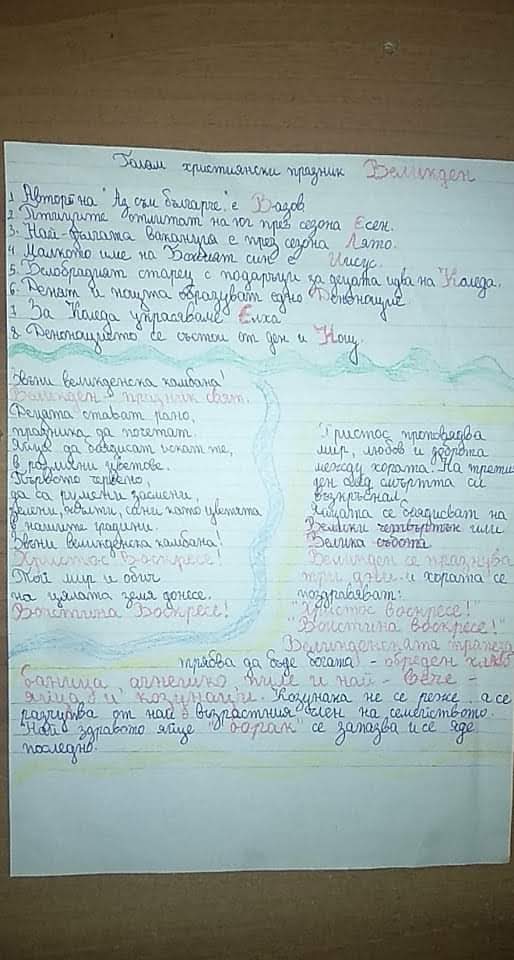 Голям християнски празник Великден
1 Авторът на "Аз съм българче" е Вазов.
2. Птиците отлитат на юг през сезона Есен.
3. Най-дългата ваканция е през сезона Лято.
4 Малкото име на Божият син е Иисус.
5. Белобрадият старец с подаръци за децата идва на Коледа.
6. Денят и нощта образуват едно Денонощие
7. За Коледа украсяваме Елха
8. Денонощието се състои от ден и Нощ.
Звъни великденска камбана!
Великден - празник свят.
Децата стават рано,
празника да почетат.
Яйца да боядисат искат те,
в различни цветове.
Първото червено,
да са румени засмени,
зелени, жълти, сини като цветята
в нашите градини.
Звъни великденска камбана!
Христос Воскресе!
Той мир и обич
на цялата земя донесе.
Воистина Воскресе!
Христос проповядва
мир, любов и доброта
между хората. На трети
ден след смъртта си
възкръснал.
Яйцата се боядисват на
Велики четвъртък или
Велика събота
Великден се празнува
три дни и хората се
поздравяват:
"Христос воскресе!"
"Воистина воскресе!"
Великденската трапеза
трябва да бъде богата - обреден хляб
баница агнешко, пиле и най - вече -
яйца и козунаци. Козунака не се реже, а се
разчупва от най възрастния член на семейството.
Най здравото яйце "борак" се запазва и се яде
последно.